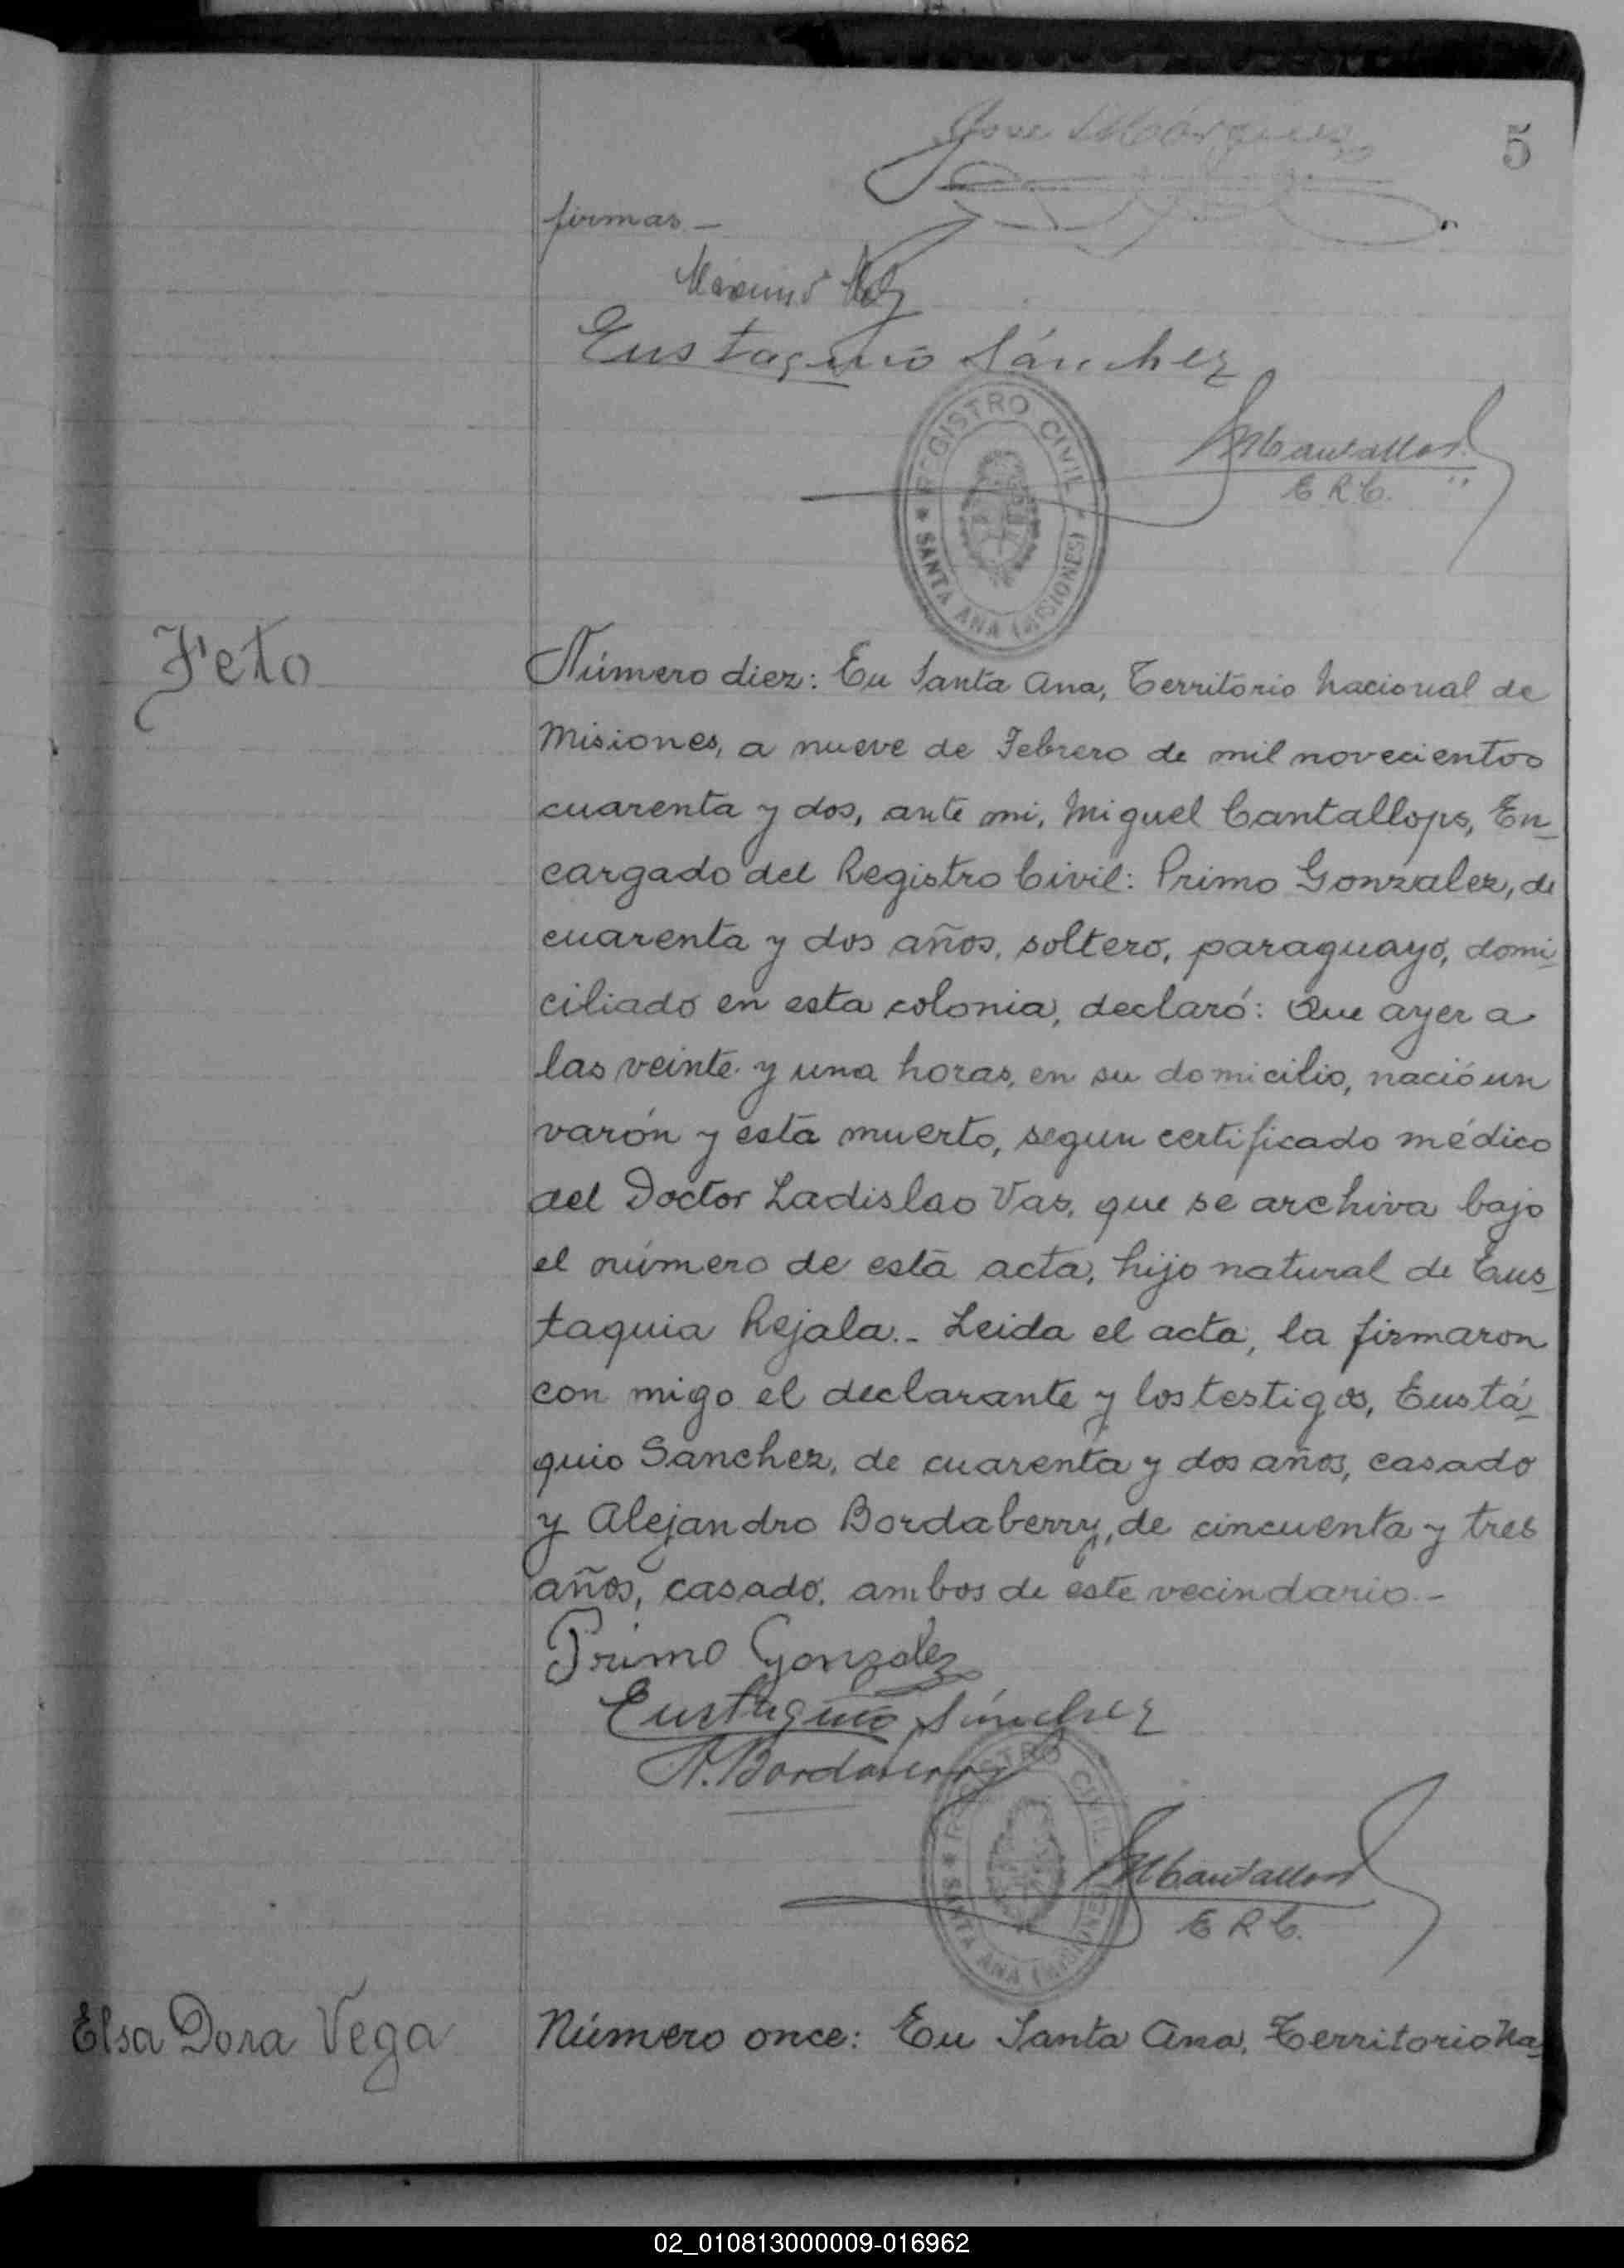 Jose Márquez
5
firmas -
Eustaquio Sánchez
REGISTRO CIVIL
* SANTA ANA (MISIONES) *
MCantallops
E R C.
Feto
Número diez: En Santa Ana, Territorio Nacional de
Misiones, a nueve de Febrero de mil novecientos
cuarenta y dos, ante mi, Miguel Cantallops, En_
cargado del Registro Civil: Primo Gonzalez, de
cuarenta y dos años, soltero, paraguayo, domi_
ciliado en esta colonia, declaró: Que ayer a
las veinte y una horas, en su domicilio, nació un
varón y está muerto, segun certificado médico
del Doctor Ladislao Vas, que se archiva bajo
el número de esta acta, hijo natural de Eus_
taquia Rejala.- Leida el acta, la firmaron
con migo el declarante y los testigos, Eustá_
quio Sanchez, de cuarenta y dos años, casado
y Alejandro Bordaberry, de cincuenta y tres
años, casado, ambos de este vecindario.-
Primo Gonzalez
Eustaquio Sánchez
A. Bordaberry
REGISTRO CIVIL
* SANTA ANA (MISIONES)
MCantallops
E R C.
Elsa Dora Vega
Número once: En Santa Ana, Territorio Na_
02_010813000009-016962